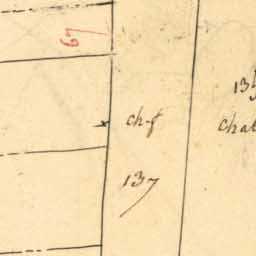 67
ch-f
137
13
chat